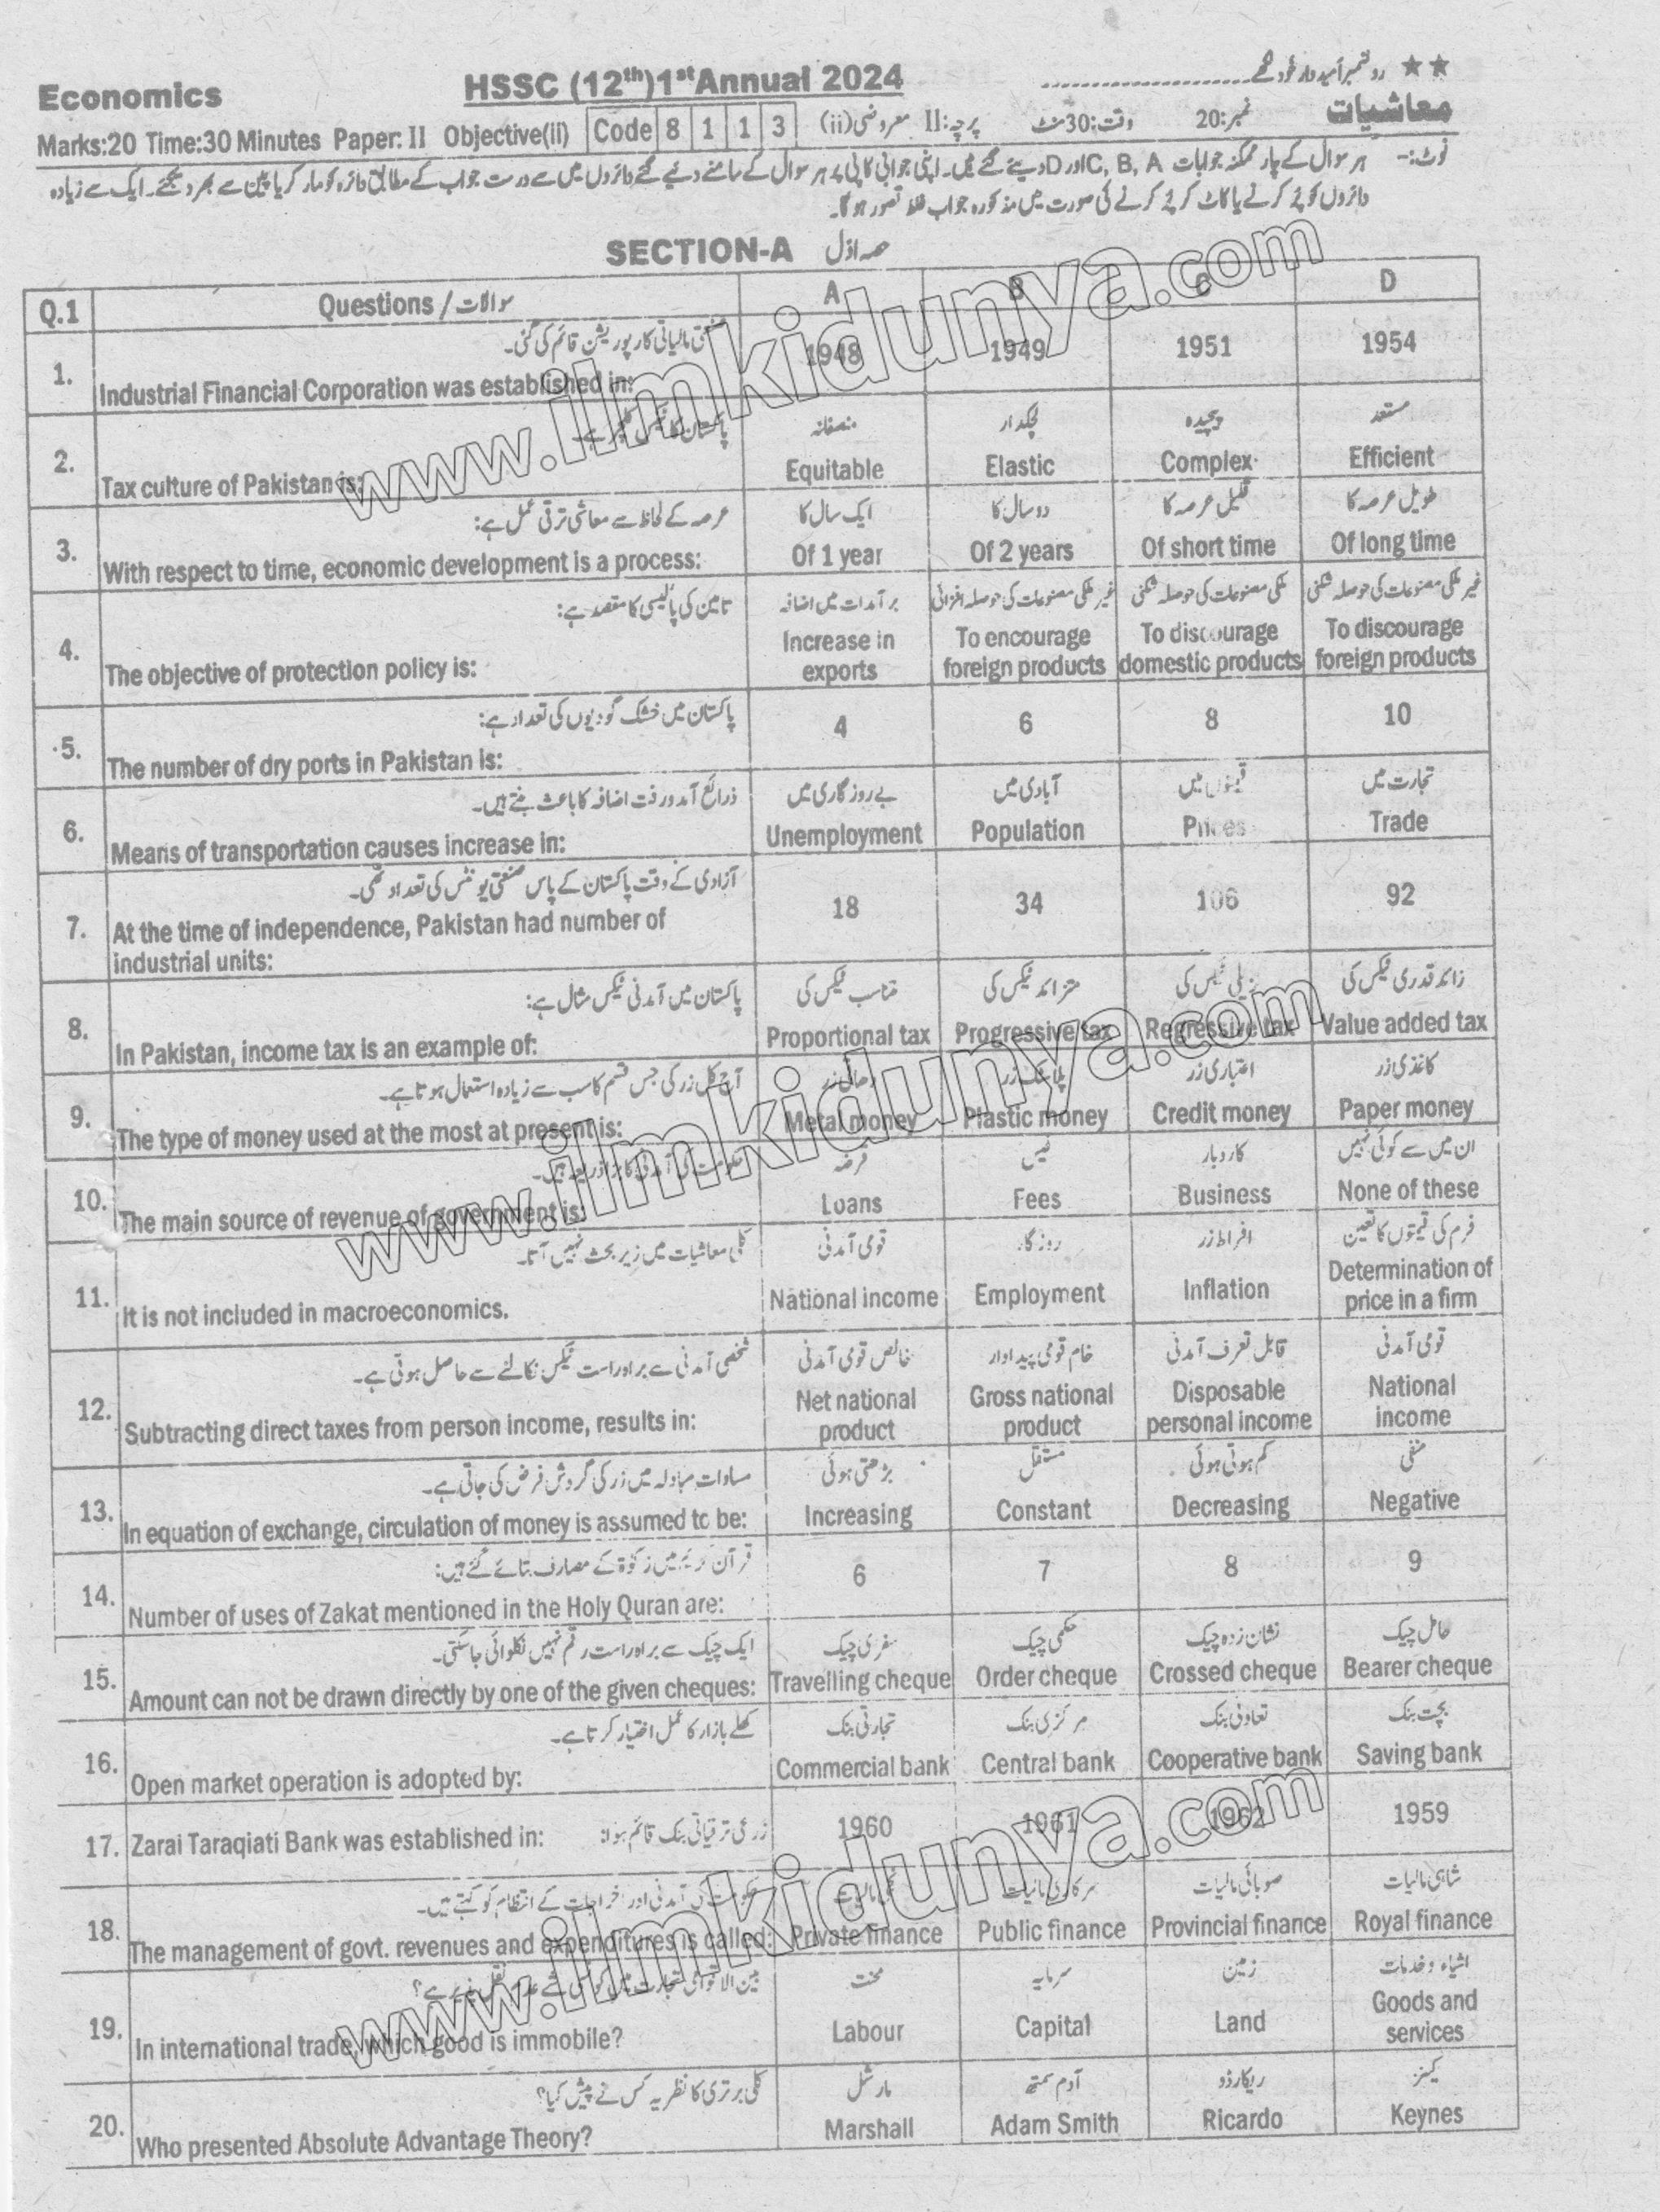 Economics
HSSC (12th)1stAnnual 2024
★★
معاشیات
Marks:20 Time:30 Minutes Paper: II Objective(ii) Code 8 1 1 3
پرچہ:II معروضی(ii)
وقت:30منٹ
نمبر:20
نوٹ:- ہر سوال کے چار ممکنہ جوابات C, B, A اور D دیئے گئے ہیں۔ اپنی جوابی کاپی پر ہر سوال کے سامنے دئیے گئے دائروں میں سے درست جواب کے مطابق دائرہ کو مارکر یا پین سے بھر دیجئے۔ ایک سے زیادہ
دائروں کو پُر کرنے یا کاٹ کر پُر کرنے کی صورت میں مذکورہ جواب غلط تصور ہوگا۔
SECTION-A حصہ اوّل
Q.1 Questions / سوالات A B C D
1. صنعتی مالیاتی کارپوریشن قائم کی گئی۔
Industrial Financial Corporation was established in: 1948 1949 1951 1954
2. پاکستان کا ٹیکس کلچر ہے۔ منصفانہ لچکدار پیچیدہ مستعد
Tax culture of Pakistan is: Equitable Elastic Complex Efficient
3. عرصہ کے لحاظ سے معاشی ترقی عمل ہے: ایک سال کا دو سال کا قلیل عرصہ کا طویل عرصہ کا
With respect to time, economic development is a process: Of 1 year Of 2 years Of short time Of long time
4. تامین کی پالیسی کا مقصد ہے: برآمدات میں اضافہ غیر ملکی مصنوعات کی حوصلہ افزائی ملکی مصنوعات کی حوصلہ شکنی غیر ملکی مصنوعات کی حوصلہ شکنی
The objective of protection policy is: Increase in exports To encourage foreign products To discourage domestic products To discourage foreign products
5. پاکستان میں خشک گودیوں کی تعداد ہے:
The number of dry ports in Pakistan is: 4 6 8 10
6. ذرائع آمدورفت اضافہ کا باعث بنتے ہیں۔ بے روزگاری میں آبادی میں قیمتوں میں تجارت میں
Means of transportation causes increase in: Unemployment Population Prices Trade
7. آزادی کے وقت پاکستان کے پاس صنعتی یونٹس کی تعداد تھی۔
At the time of independence, Pakistan had number of
industrial units: 18 34 106 92
8. پاکستان میں آمدنی ٹیکس مثال ہے: متناسب ٹیکس کی متزائد ٹیکس کی تنزیلی ٹیکس کی زائد قدری ٹیکس کی
In Pakistan, income tax is an example of: Proportional tax Progressive tax Regressive tax Value added tax
9. آج کل زر کی جس قسم کا سب سے زیادہ استعمال ہوتا ہے۔ دھاتی زر پلاسٹک زر اعتباری زر کاغذی زر
The type of money used at the most at present is: Metal money Plastic money Credit money Paper money
10. حکومت کی آمدنی کا بڑا ذریعہ ہیں۔ قرضہ فیس کاروبار ان میں سے کوئی نہیں
The main source of revenue of government is: Loans Fees Business None of these
11. کلی معاشیات میں زیر بحث نہیں آتا۔ قومی آمدنی روزگار افراط زر فرم کی قیمتوں کا تعین
It is not included in macroeconomics. National income Employment Inflation Determination of price in a firm
12. شخصی آمدنی سے براہ راست ٹیکس نکالنے سے حاصل ہوتی ہے۔ خالص قومی آمدنی خام قومی پیداوار قابل تصرف آمدنی قومی آمدنی
Subtracting direct taxes from person income, results in: Net national product Gross national product Disposable personal income National income
13. مساوات مبادلہ میں زر کی گردش فرض کی جاتی ہے۔ بڑھتی ہوئی مستقل کم ہوتی ہوئی منفی
In equation of exchange, circulation of money is assumed to be: Increasing Constant Decreasing Negative
14. قرآن کریم میں زکوٰۃ کے مصارف بتائے گئے ہیں:
Number of uses of Zakat mentioned in the Holy Quran are: 6 7 8 9
15. ایک چیک سے براہ راست رقم نہیں نکلوائی جاسکتی۔ سفری چیک حکمی چیک نشان زدہ چیک حامل چیک
Amount can not be drawn directly by one of the given cheques: Travelling cheque Order cheque Crossed cheque Bearer cheque
16. کھلے بازار کا عمل اختیار کرتا ہے۔ تجارتی بنک مرکزی بنک تعاونی بنک بچت بنک
Open market operation is adopted by: Commercial bank Central bank Cooperative bank Saving bank
17. Zarai Taraqiati Bank was established in: زرعی ترقیاتی بنک قائم ہوا: 1960 1961 1962 1959
18. حکومت کی آمدنی اور اخراجات کے انتظام کو کہتے ہیں۔ نجی مالیات سرکاری مالیات صوبائی مالیات شاہی مالیات
The management of govt. revenues and expenditures is called: Private finance Public finance Provincial finance Royal finance
19. بین الاقوامی تجارت میں کونسی شے غیر نقل پذیر ہے؟ محنت سرمایہ زمین اشیاء و خدمات
In international trade, which good is immobile? Labour Capital Land Goods and services
20. کلی برتری کا نظریہ کس نے پیش کیا؟ مارشل آدم سمتھ ریکارڈو کینز
Who presented Absolute Advantage Theory? Marshall Adam Smith Ricardo Keynes
www.ilmkidunya.com
www.ilmkidunya.com
www.ilmkidunya.com